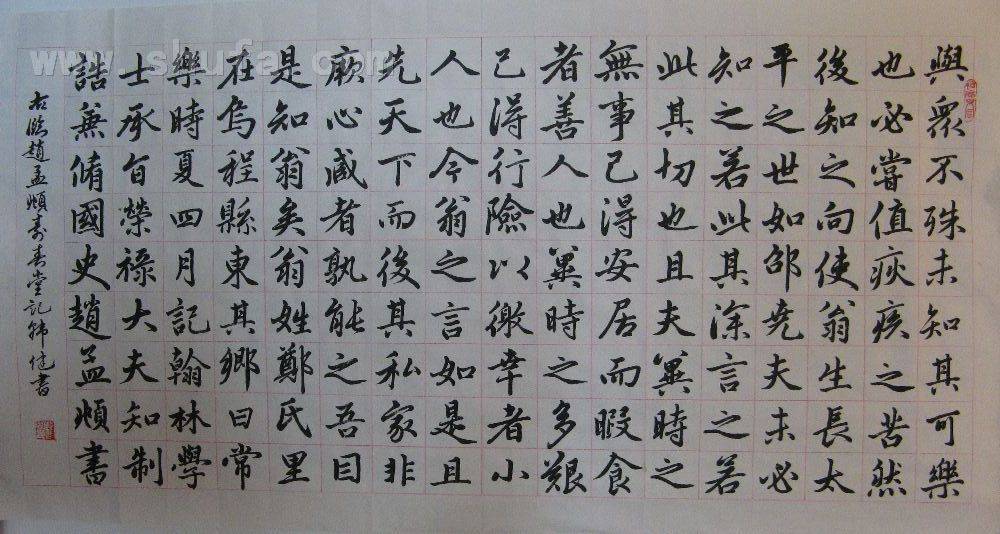 與眾不殊未知其可樂
也必嘗值疢疾之苦然
後知之向使翁生長太
平之世如邵堯夫未必
知之若此其深言之若
此其切也且夫冀時之
無事己得安居而暇食
者善人也冀時之多艱
己得行險以徼幸者小
人也今翁之言如是且
先天下而後其私家非
厥心臧者孰能之吾目
是知翁矣翁姓鄭氏里
在烏程縣東其鄉曰常
樂時夏四月記翰林學
士承旨榮祿大夫知制
誥兼脩國史趙孟頫書
右臨趙孟頫壽春堂記韓健書
www.shufa.com